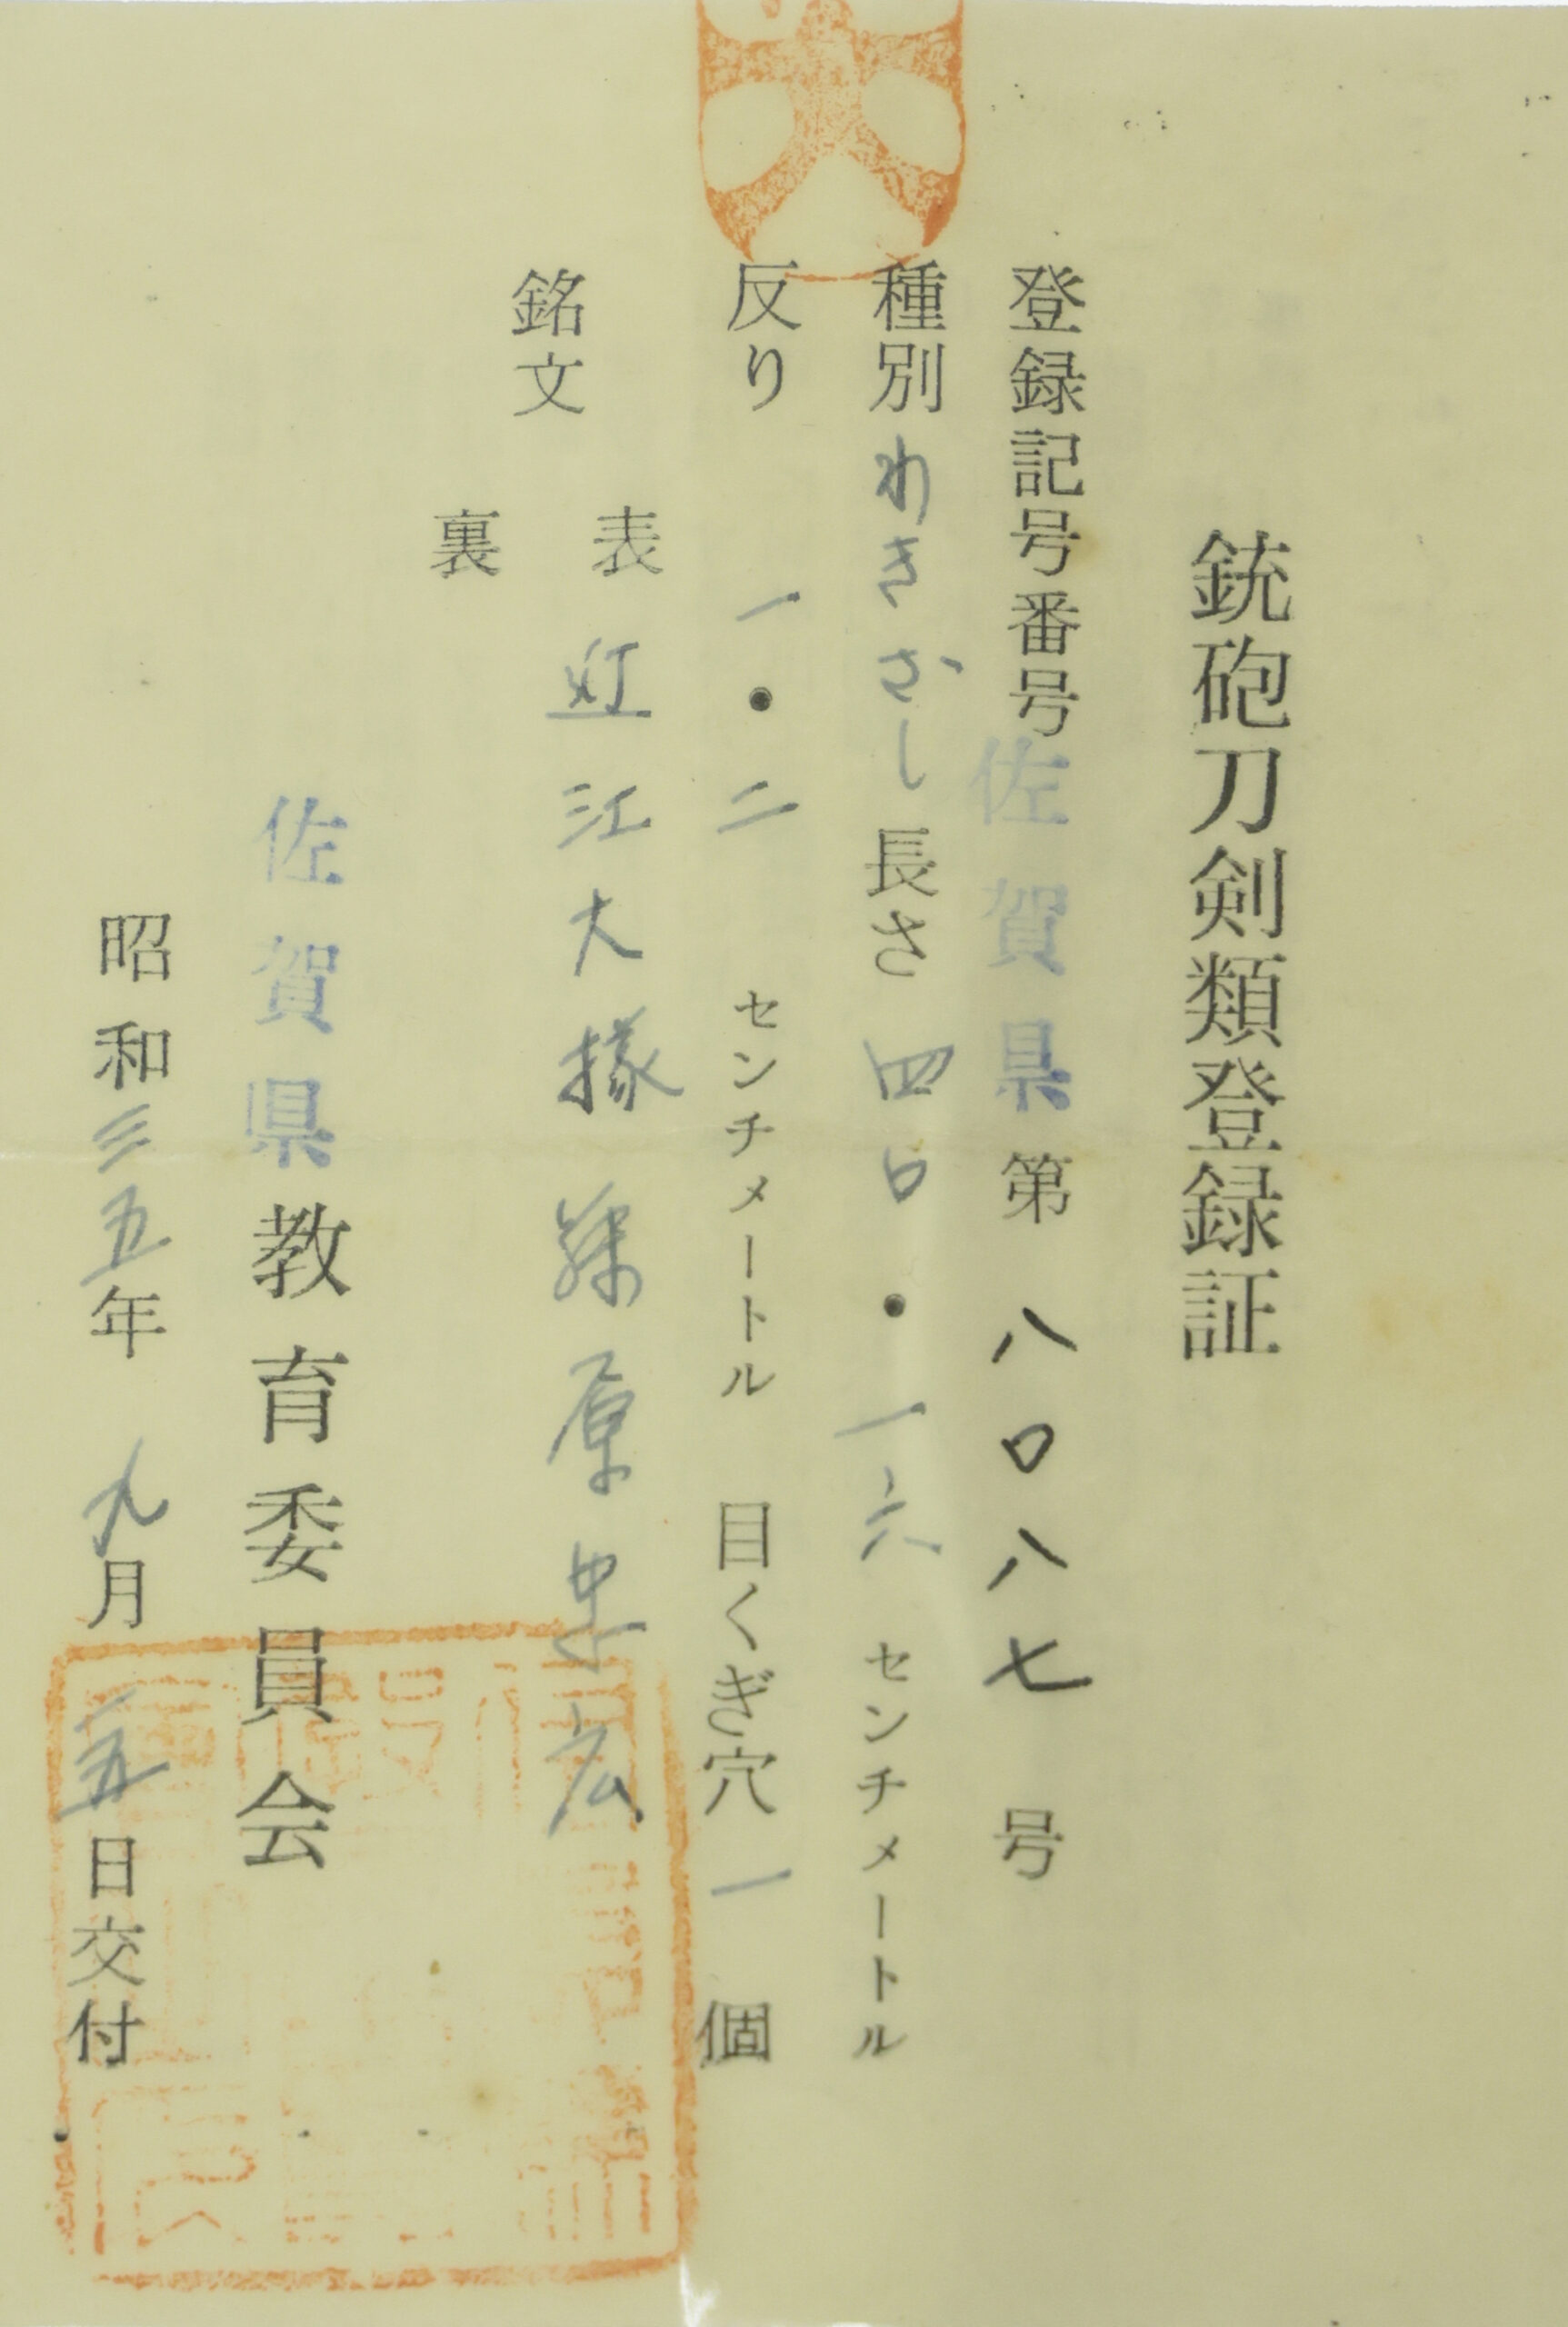 銃砲刀剣類登録証
登録記号番号 佐賀県 第 八〇八七 号
種別 わきざし 長さ 四〇・一六 センチメートル
反り 一・二 センチメートル 目くぎ穴 一 個
銘文 表 近江大掾藤原忠広
裏
佐賀県教育委員会
昭和三五年 九月 五日交付